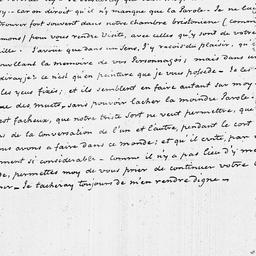 oy - car on diroit qu'il n'y manque que la Parole. Je ne lai
trouver fort souvent dans notre chambre bristonienne (comm
mons) pour vous rendre visite, avec celles qu'y sont de votre
ille. J'avoie que dans un sens, j'y reçois du plaisir, qu
ouvellant la memoire de vos Personnages; mais dans un
diray-je ce n'est qu'en peinture que je vous possede. Je les
les yeux fixés; et ils semblent en faire autant sur moy
me des muets, sans pouvoir lacher la moindre Parole.
est facheux, que notre triste sort ne veut permettre, que
s de la conversation de l'un et l'autre, pendant le cort
ous avons a faire dans ce monde; et qu'il crite, par
ment si considerable. Comme il n'y a pas lieu d'y me
de, permettes moy de vous prier de continuer votre
ner. Je tacheray toujours de m'en rendre digne.